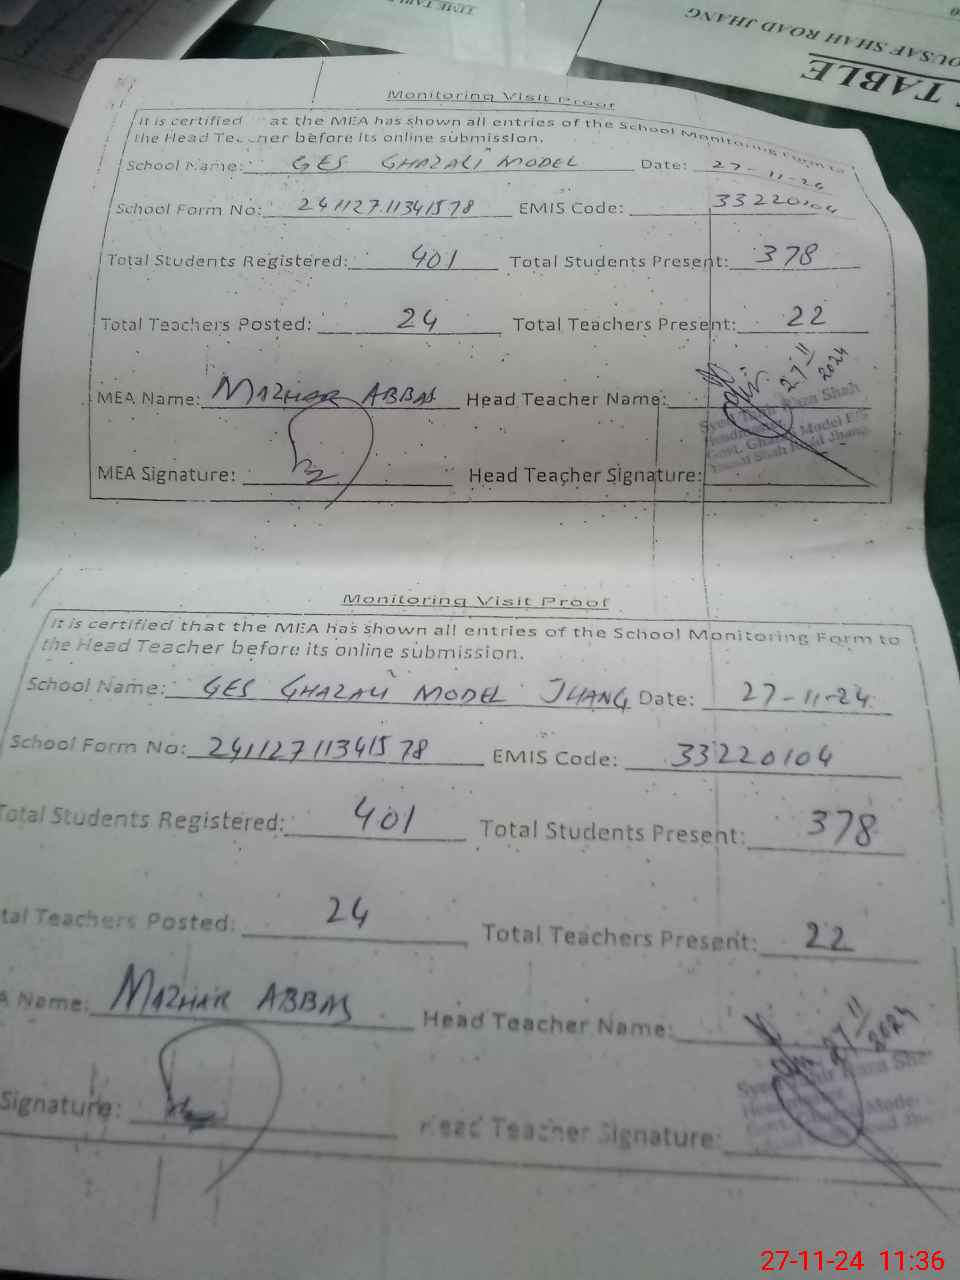 TIME TABLE
OUSAF SHAH ROAD JHANG
TABLE
Monitoring Visit Proof
It is certified at the MEA has shown all entries of the School Monitoring Form to
the Head Teacher before its online submission.
School Name: GES GHAZALI MODEL Date: 27-11-24
School Form No: 24112711341578 EMIS Code: 33220104
Total Students Registered: 401 Total Students Present: 378
Total Teachers Posted: 24 Total Teachers Present: 22
MEA Name: MAZHAR ABBAS Head Teacher Name:
27 11
2024
Shah
Model
Shah Road Jhang
MEA Signature: Head Teacher Signature:
Monitoring Visit Proof
It is certified that the MEA has shown all entries of the School Monitoring Form to
the Head Teacher before its online submission.
School Name: GES GHAZALI MODEL JHANG Date: 27-11-24
School Form No: 24112711341578 EMIS Code: 33220104
Total Students Registered: 401 Total Students Present: 378
tal Teachers Posted: 24 Total Teachers Present: 22
A Name: MAZHAR ABBAS Head Teacher Name:
27 11
2024
Signature: Head Teacher Signature:
27-11-24 11:36